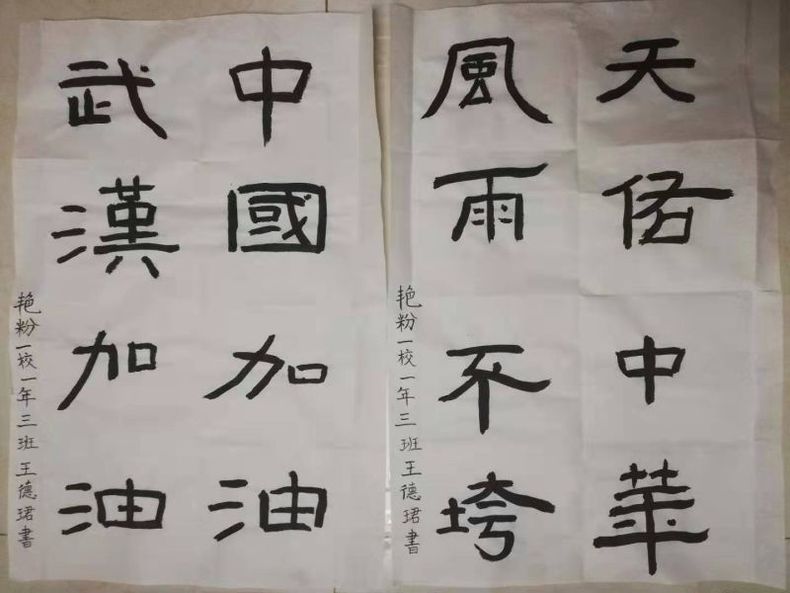 天佑中華
風雨不垮
艳粉一校一年三班王德珺書
中國加油
武漢加油
艳粉一校一年三班王德珺書